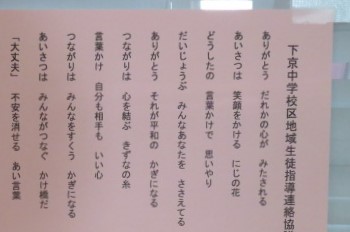 下京中学校区地域生徒指導連絡協
ありがとう だれかの心が みたされる
あいさつは 笑顔をかける にじの花
どうしたの 言葉かけで 思いやり
だいじょうぶ みんなあなたを ささえてる
ありがとう それが平和の かぎになる
つながりは 心を結ぶ きずなの糸
言葉かけ 自分も相手も いい心
つながりは みんなをすくう かぎになる
あいさつは みんながつなぐ かけ橋だ
「大丈夫」 不安を消せる あい言葉